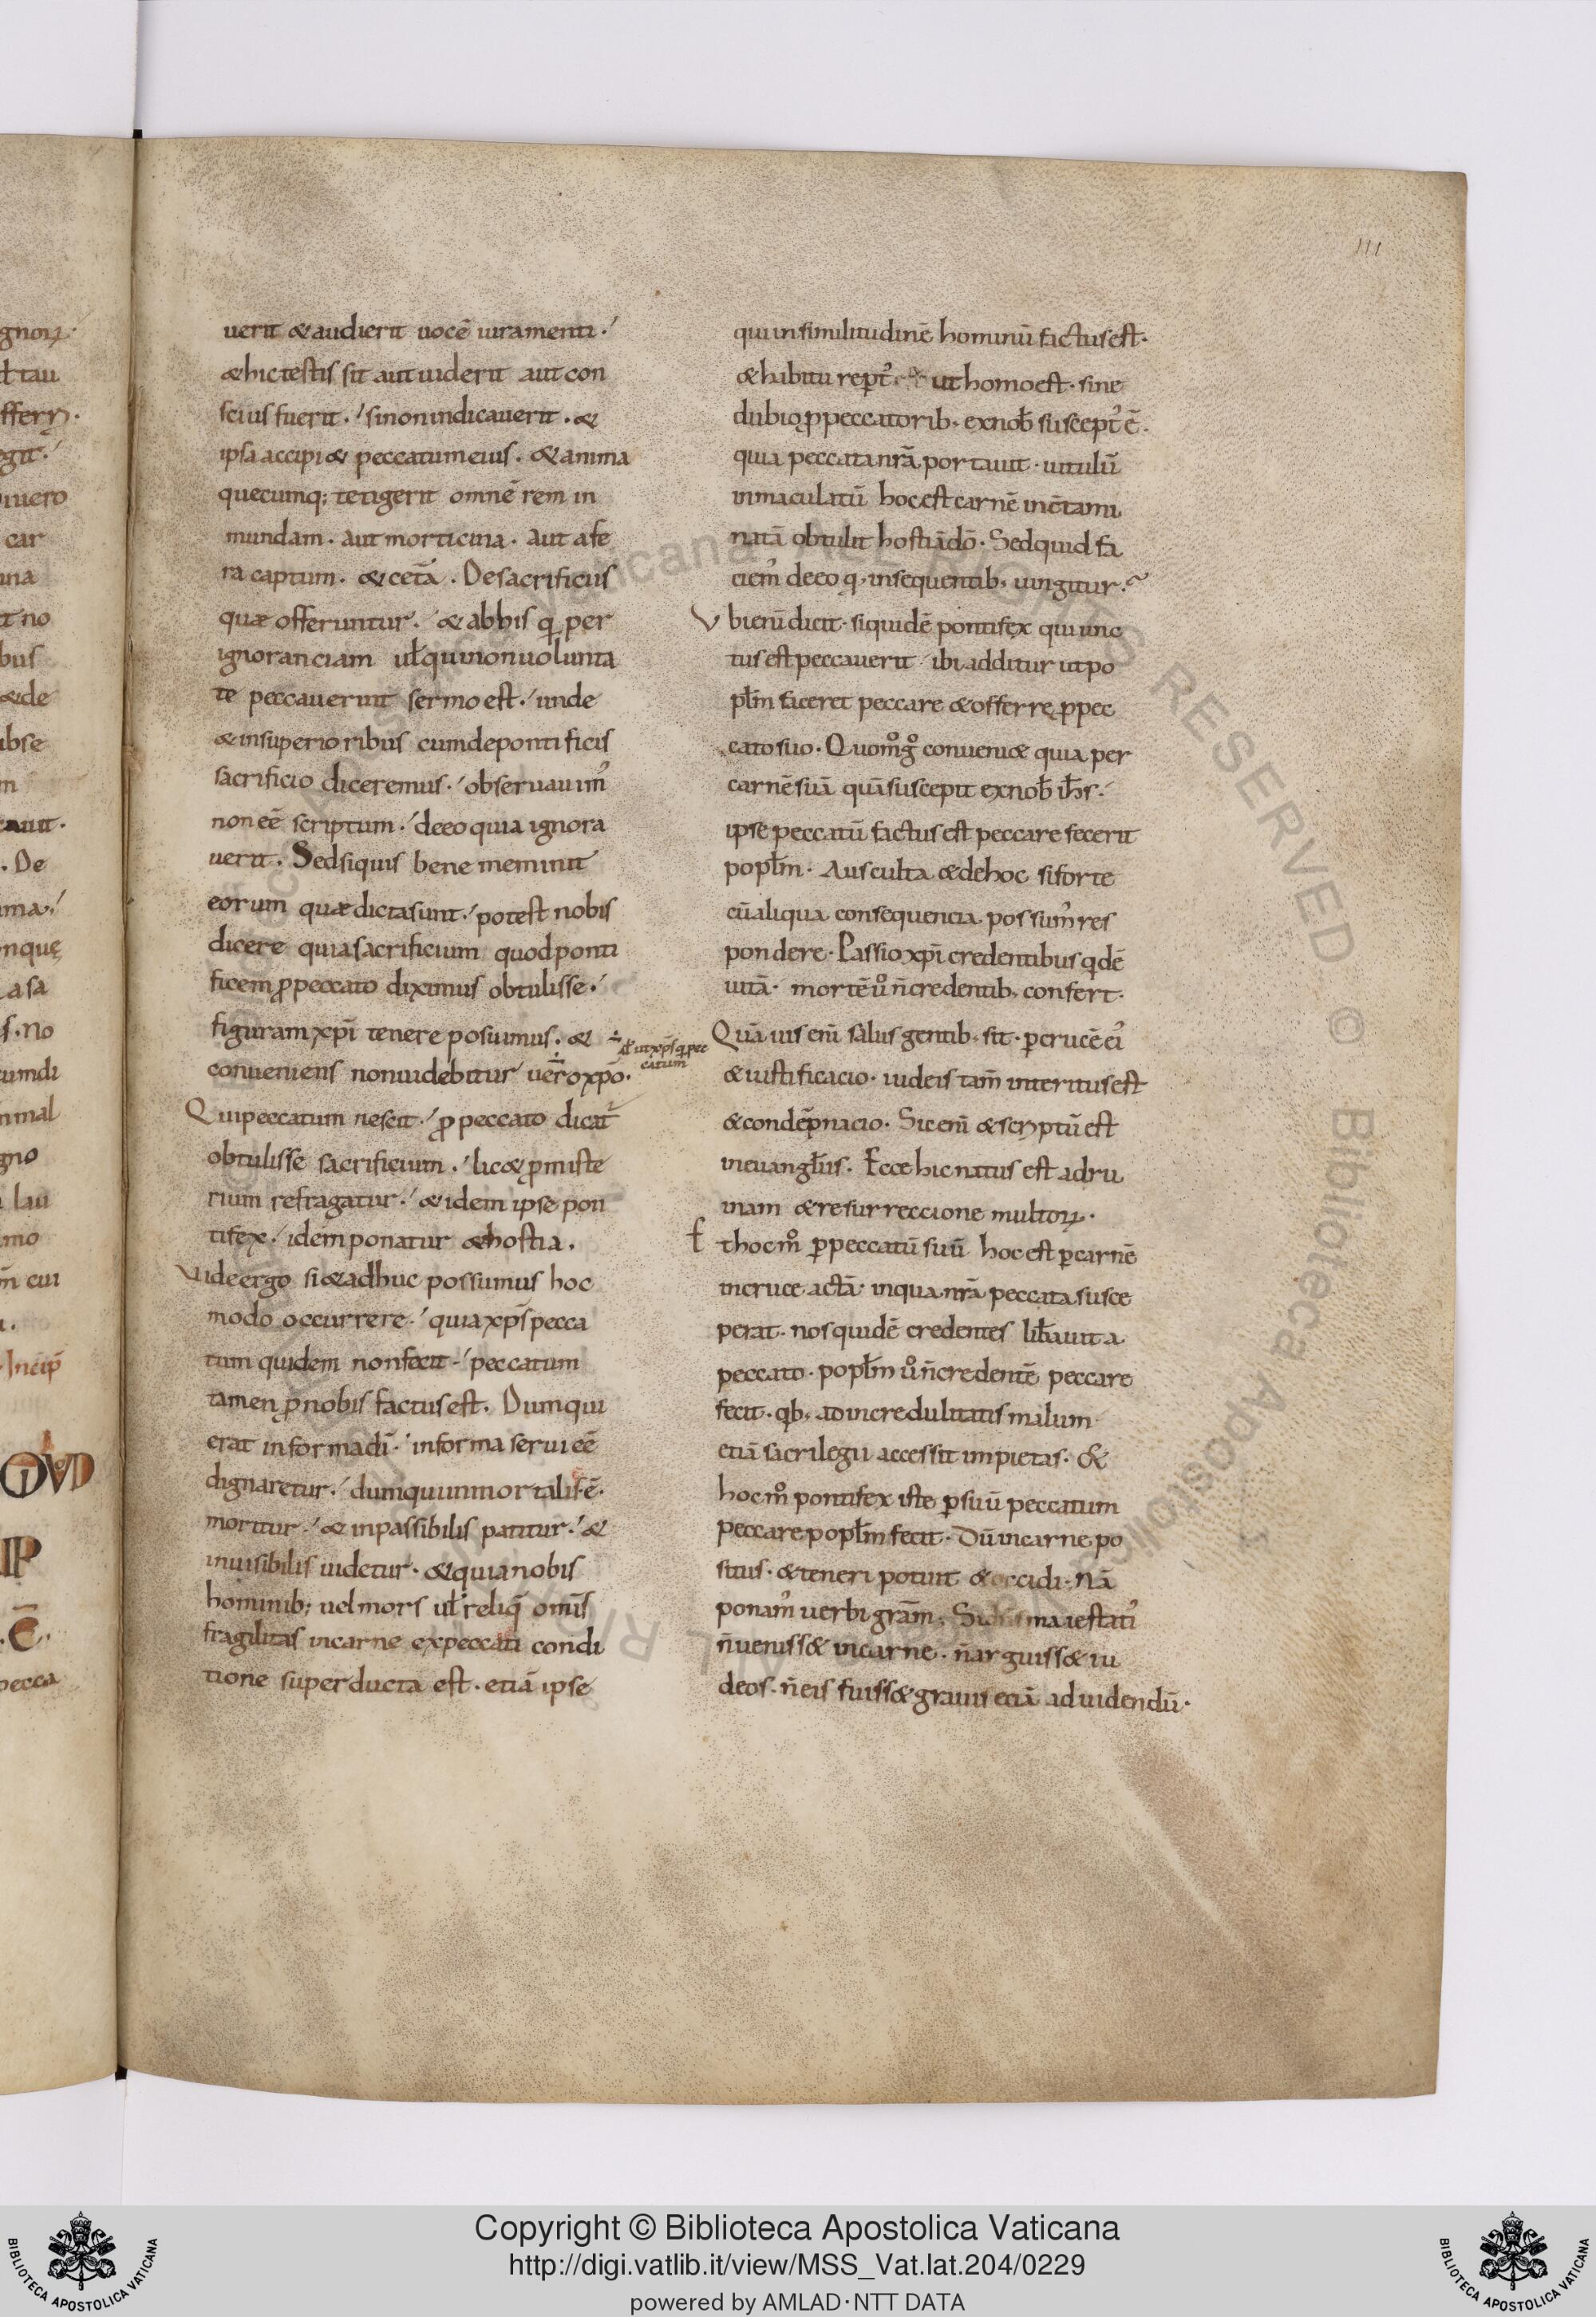 111
uerit & audierit uocē iuramenti.
& hic testis sit aut uiderit aut con
scius fuerit. si non indicauerit. &
ipsa accipi& peccatum eius. & anima
quecumq; tetigerit omnē rem in
mundam. aut morticina. aut a fe
ra captum. & cet̄a. De sacrificiis
quæ offeruntur. & ab his qi per
ignoranciam ut̄ qui non uolunta
te peccauerint sermo est. unde
& in superioribus cum de pontificis
sacrificio diceremus. obseruauim᾿
non eē scriptum. de eo quia ignora
uerit. Sed si quis bene meminit
eorum quæ dicta sunt. potest nobis
dicere quia sacrificium quod ponti
ficem ꝓ peccato diximus obtulisse.
figuram xp̄i tenere posuimus. &
conueniens non uidebitur uero xp̄o.
Qui peccatum nescit. ꝓ peccato dicat᾿
obtulisse sacrificium. lic& ꝓ miste
rium refragatur. & idem ipse pon
tifex. idem ponatur & hostia.
Uide ergo si & adhuc possumus hoc
modo occurrere. quia xp̄s pecca
tum quidem non fecit. peccatum
tamen ꝓ nobis factus est. Dum qui
erat in forma dī. in forma serui eē
dignaretur. dum qui inmortalis ē.
moritur. & inpassibilis patitur. &
inuisibilis uidetur. & quia nobis
hominib; uel mors ut̄ reliq̄ omīs
fragilitas in carne ex peccati condi
tione superducta est. etiā ipse
qui in similitudinē hominū factus est.
& habitu rept᾿ ut homo est. sine
dubio ꝓ peccatorib. ex nob̄ suscept᾿ ē.
quia peccata nr̄a portauit. uitulū
inmaculatū hoc est carnē incōtami
natā obtulit hostiā dō. Sed quid fa
ciem᾿ de eo q. insequentib. iungitur.
Ubi enī dicit. siquidē pontifex qui unc
tus est peccauerit ibi additur ut po
pl̄m faceret peccare & offerre ꝓ pec
cato suo. Quom̊ gͦ conueni& quia per
carnē suā quā suscepit ex nob̄ ih̄s.
ipse peccatū factus est peccare fecerit
popl̄m. Ausculta & de hoc si forte
cū aliqua consequencia possum᾿ res
pondere. Passio xp̄i credentibus qdē
uitā. mortē uͦ n̄ credentib. confert.
Quāuis enī salus gentib. sit. ꝑ crucē ei᾿
& iustificacio. iudeis tam̄ interitus est
& condēpnacio. Sic enī & scriptū est
in euangl̄iis. Ecce hic natus est ad ru
inam & resurreccione multoꝝ.
Et hoc m̊ ꝑ peccatū suū hoc est ꝑ carnē
in cruce actā. in qua nr̄a peccata susce
perat. nos quidē credentes lib̄auit a
peccato. popl̄m uͦ n̄ credentē peccare
fecit. qb. ad incredulitatis malum
etiā sacrilegii accessit impietas. &
hoc m̊ pontifex iste ꝑ suū peccatum
peccare popl̄m fecit. Dū in carne po
situs. & teneri potuit & occidi. Nā
ponam᾿ uerbi gr̄am. Si dn̄s maiestati᾿
n̄ ueniss& in carne. n̄ arguiss& iu
deos. n̄ eis fuiss& grauis etiā ad uidendū.
Copyright © Biblioteca Apostolica Vaticana
http://digi.vatlib.it/view/MSS_Vat.lat.204/0229
powered by AMLAD·NTT DATA